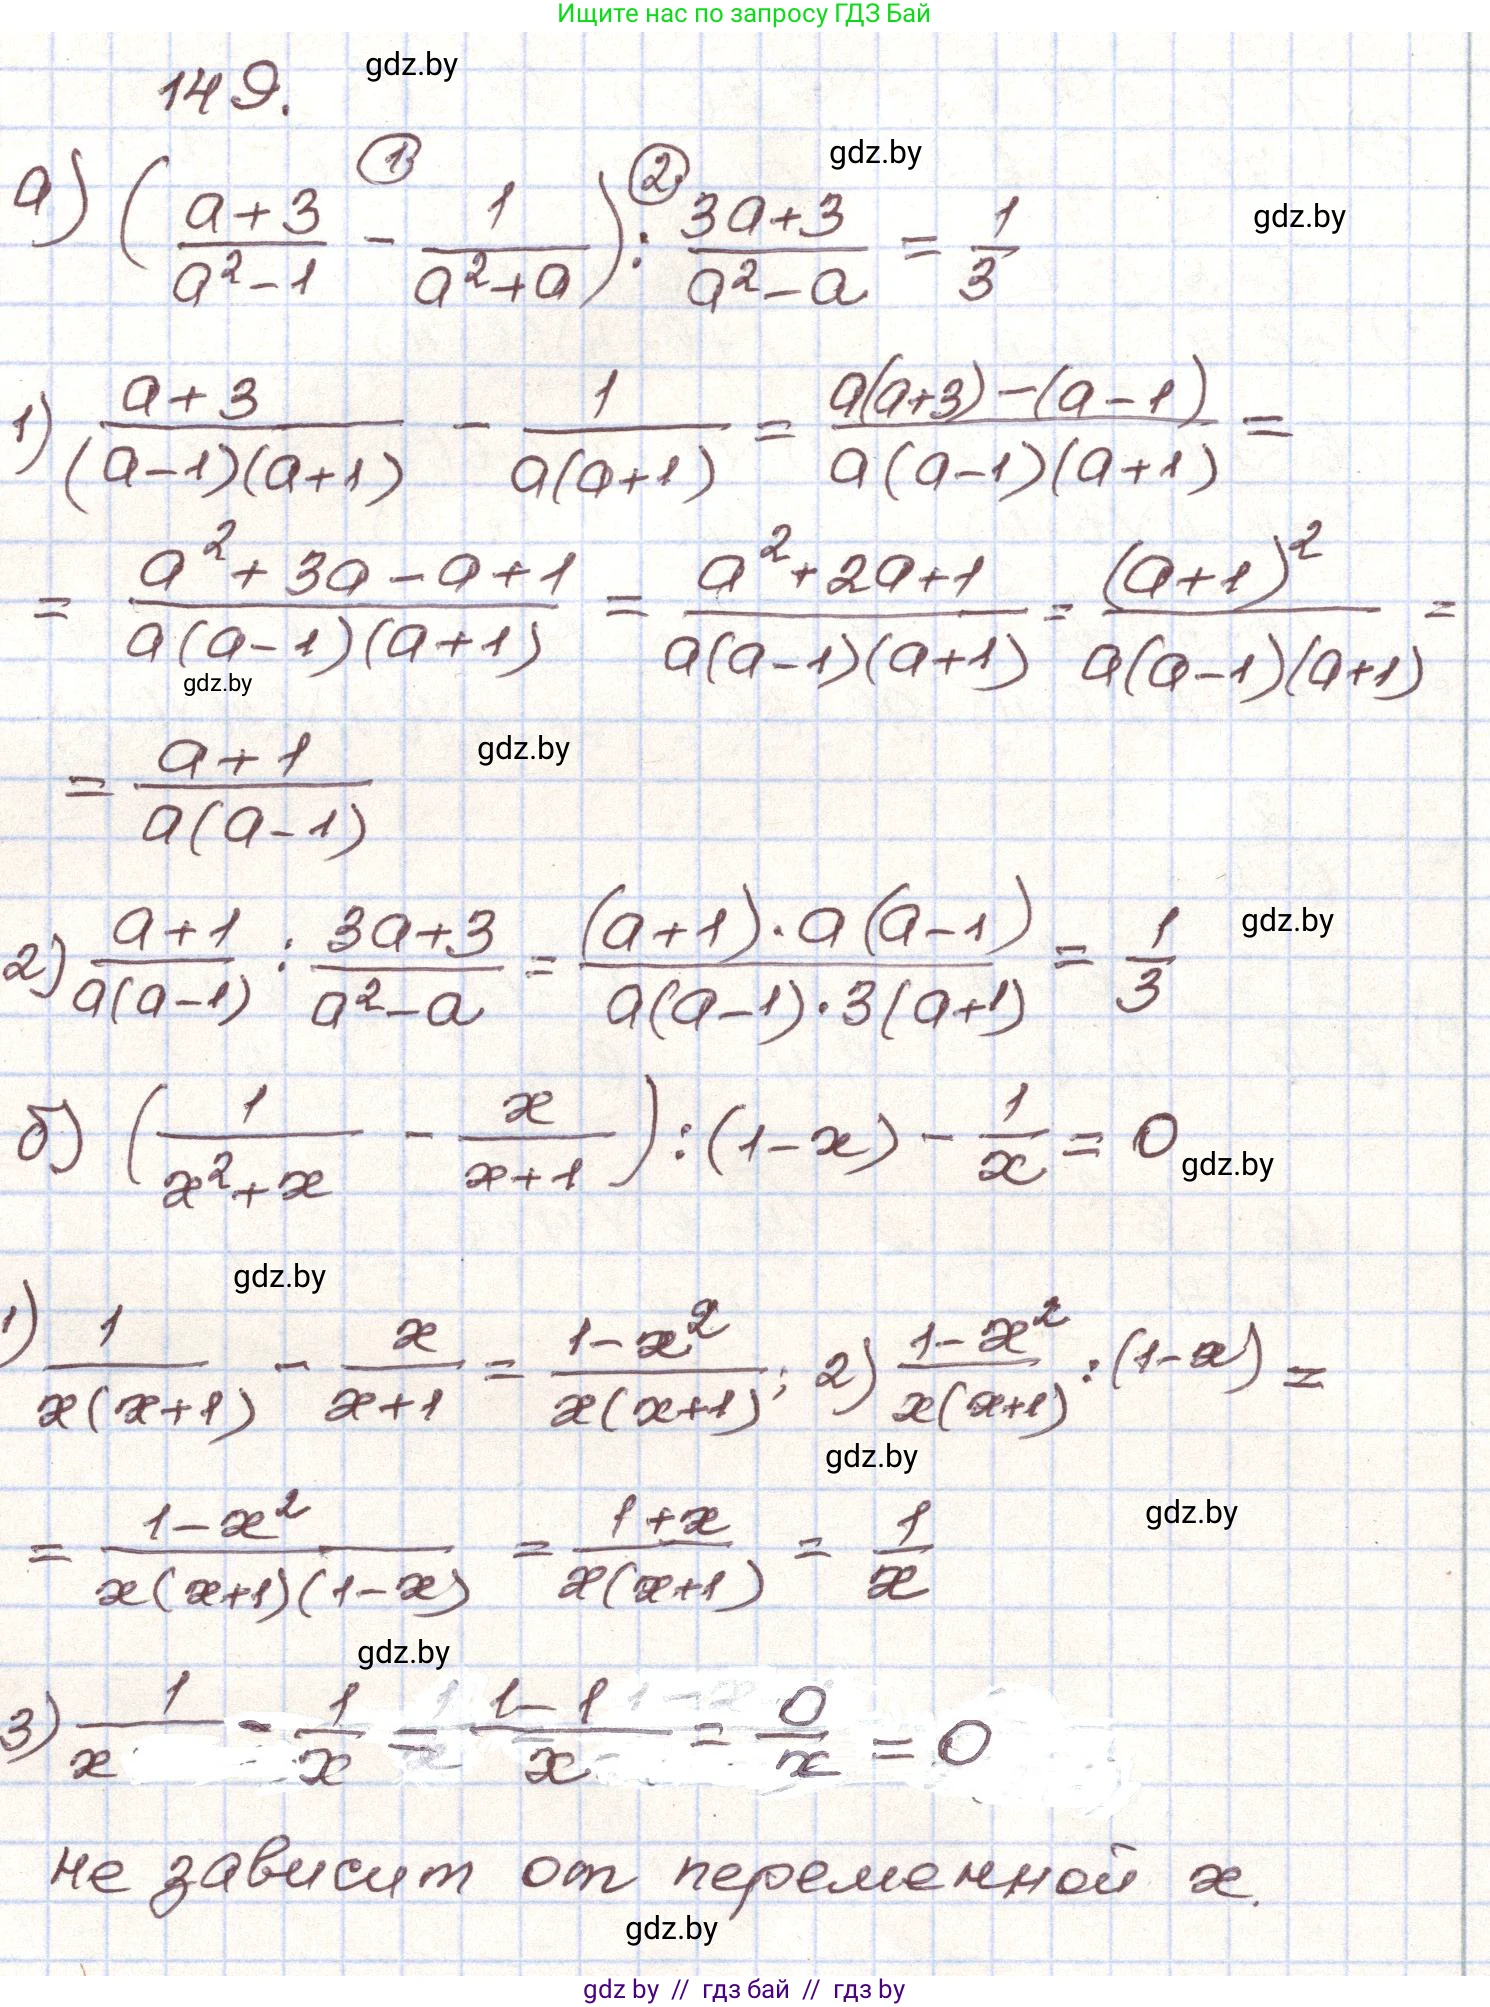 Ищите нас по запросу ГДЗ Бай
149. gdz.by
① ② gdz.by
а) ((a+3)/(a²-1) - 1/(a²+a)) : (3a+3)/(a²-a) = 1/3 gdz.by
1) (a+3)/((a-1)(a+1)) - 1/(a(a+1)) = (a(a+3)-(a-1))/(a(a-1)(a+1)) =
= (a²+3a-a+1)/(a(a-1)(a+1)) = (a²+2a+1)/(a(a-1)(a+1)) = (a+1)²/(a(a-1)(a+1)) =
gdz.by
= (a+1)/(a(a-1)) gdz.by
2) (a+1)/(a(a-1)) : (3a+3)/(a²-a) = ((a+1)·a(a-1))/(a(a-1)·3(a+1)) = 1/3 gdz.by
б) (1/(x²+x) - x/(x+1)) : (1-x) - 1/x = 0 gdz.by
gdz.by
1) 1/(x(x+1)) - x/(x+1) = (1-x²)/(x(x+1)); 2) (1-x²)/(x(x+1)) : (1-x) =
gdz.by
= (1-x²)/(x(x+1)(1-x)) = (1+x)/(x(x+1)) = 1/x gdz.by
gdz.by
3) 1/x - 1/x = (1-1)/x = 0/x = 0
не зависит от переменной x.
gdz.by
gdz by // гдз бай // гдз by